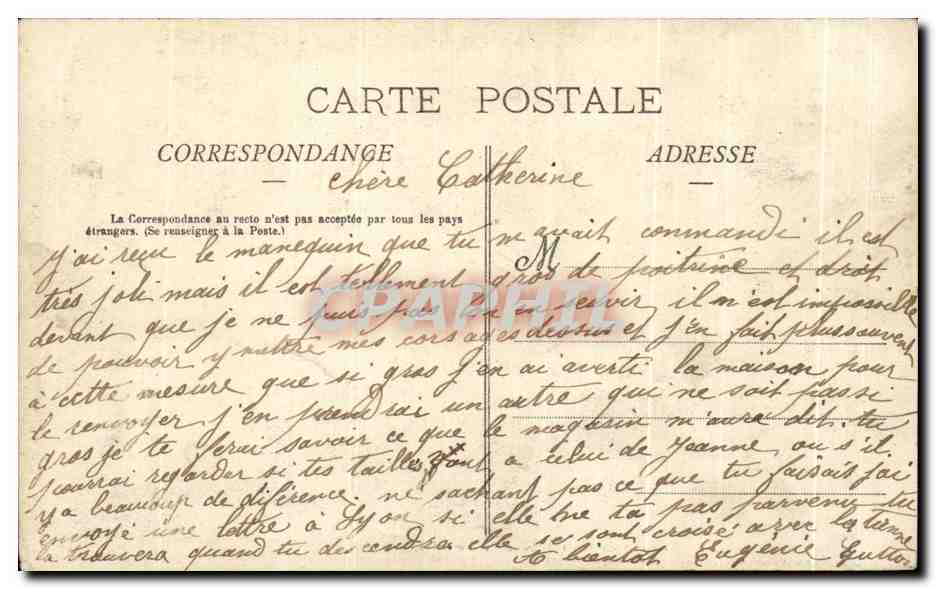 CARTE POSTALE
CORRESPONDANCE
ADRESSE
chère Catherine
La Correspondance au recto n'est pas acceptée par tous les pays
étrangers. (Se renseigner à la Poste.)
M
j'ai reçu le manequin que tu m'avait commandé il est
très joli mais il est tellement gros de poitrine et droit
devant que je ne puis pas m'en servir, il m'est impossible
de pouvoir y mettre mes corsages dessus et j'en fait plus souvent
à cette mesure que si gros j'en ai averti la maison pour
le renvoyer j'en prendrai un autre qui ne soit pas si
gros je te ferai savoir ce que le magasin m'aura dit. tu
pourrai regarder si tes tailles vont a celui de Jeanne ou s'il
y a beaucoup de diférence. ne sachant pas ce que tu faisait j'ai
envoyé une lettre à Lyon si elle ne ta pas parvenu tu
la trouvera quand tu descendra elle se sont croisé avec la tienne
A bientot Eugénie
CPAPHIL